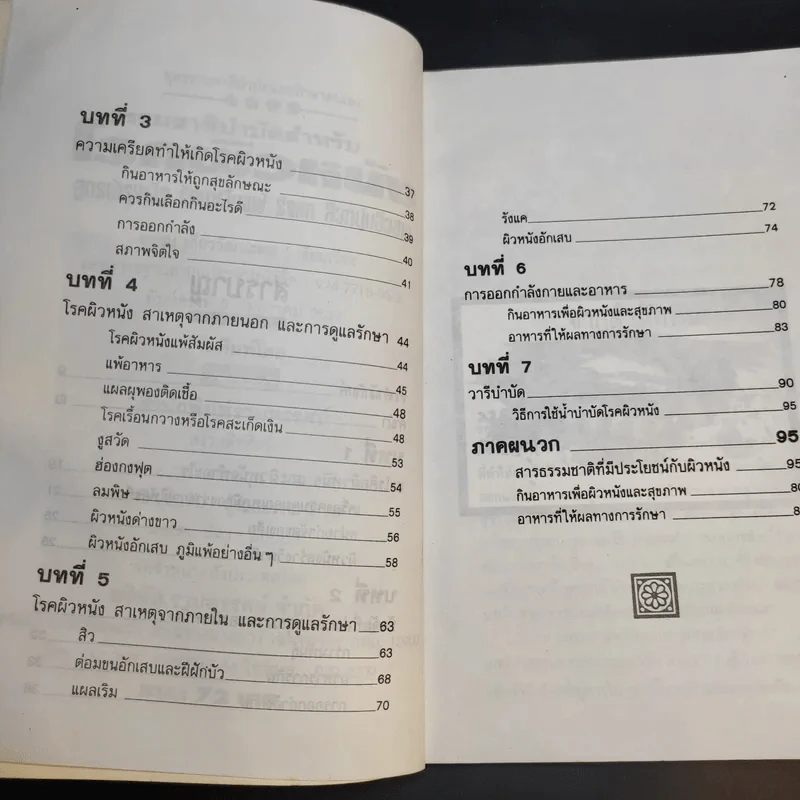 บทที่ 3
ความเครียดทำให้เกิดโรคผิวหนัง 37
กินอาหารให้ถูกสุขลักษณะ 38
ควรกินเลือกกินอะไรดี 39
การออกกำลัง 40
สภาพจิตใจ 41
บทที่ 4
โรคผิวหนัง สาเหตุจากภายนอก และการดูแลรักษา 44
โรคผิวหนังแพ้สัมผัส 44
แพ้อาหาร 45
แผลผุพองติดเชื้อ 48
โรคเรื้อนกวางหรือโรคสะเก็ดเงิน 48
งูสวัด 53
ฮ่องกงฟุต 54
ลมพิษ 55
ผิวหนังด่างขาว 56
ผิวหนังอักเสบ ภูมิแพ้อย่างอื่น ๆ 58
บทที่ 5
โรคผิวหนัง สาเหตุจากภายใน และการดูแลรักษา 63
สิว 63
ต่อมขนอักเสบและฝีฝักบัว 68
แผลเริม 70
รังแค 72
ผิวหนังอักเสบ 74
บทที่ 6
การออกกำลังกายและอาหาร 78
กินอาหารเพื่อผิวหนังและสุขภาพ 80
อาหารที่ให้ผลทางการรักษา 83
บทที่ 7
วารีบำบัด 90
วิธีการใช้น้ำบำบัดโรคผิวหนัง 95
ภาคผนวก 95
สารธรรมชาติที่มีประโยชน์กับผิวหนัง 95
กินอาหารเพื่อผิวหนังและสุขภาพ 80
อาหารที่ให้ผลทางการรักษา